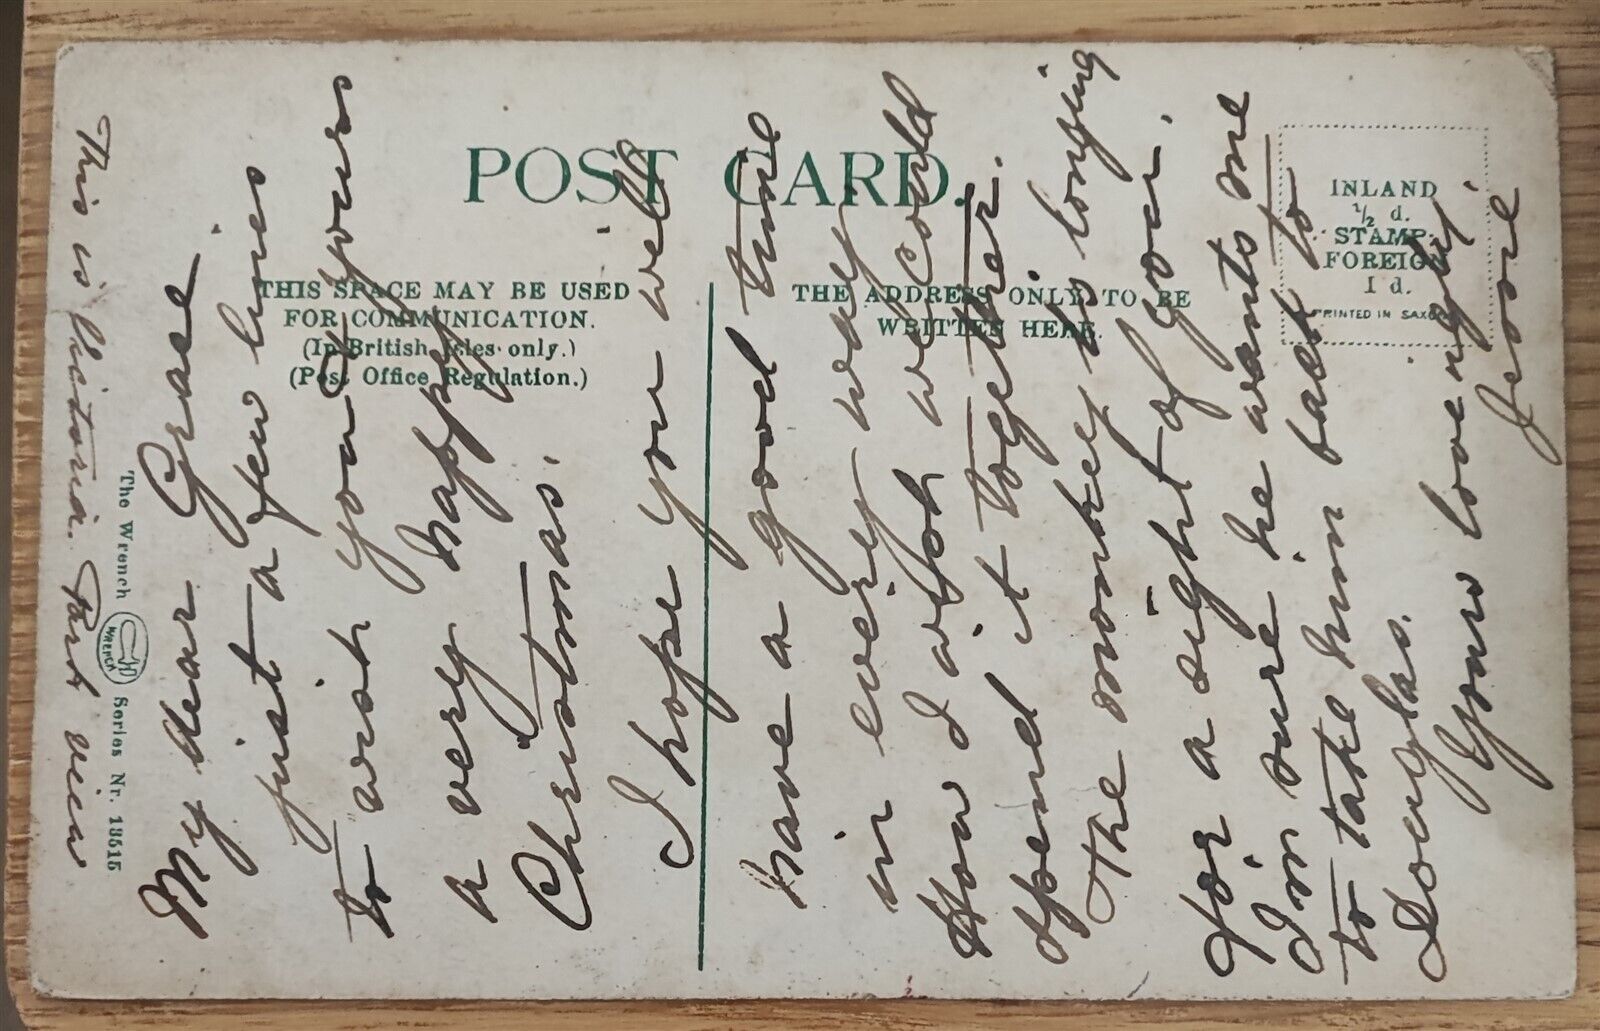 POST CARD.
THIS SPACE MAY BE USED
FOR COMMUNICATION.
(In British Isles only.)
(Post Office Regulation.)
THE ADDRESS ONLY TO BE
WRITTEN HERE.
INLAND
½ d.
STAMP
FOREIGN
1 d.
PRINTED IN SAXONY
The Wrench WRENCH Series Nr. 13515
This is Victoria Park view
My dear Grace
just a few lines
to wish you & yours
a very happy
Christmas.
I hope you will
have a good time
in every way
How I wish we could
spend it together.
The monkey is longing
for a sight of you.
I'm sure he wants me
to take him back to
Douglas.
Yours lovingly